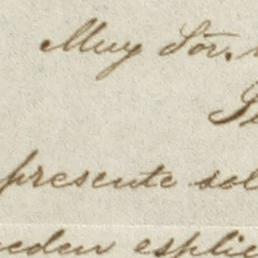 Muy Sor.
presente sol
ueden esplic